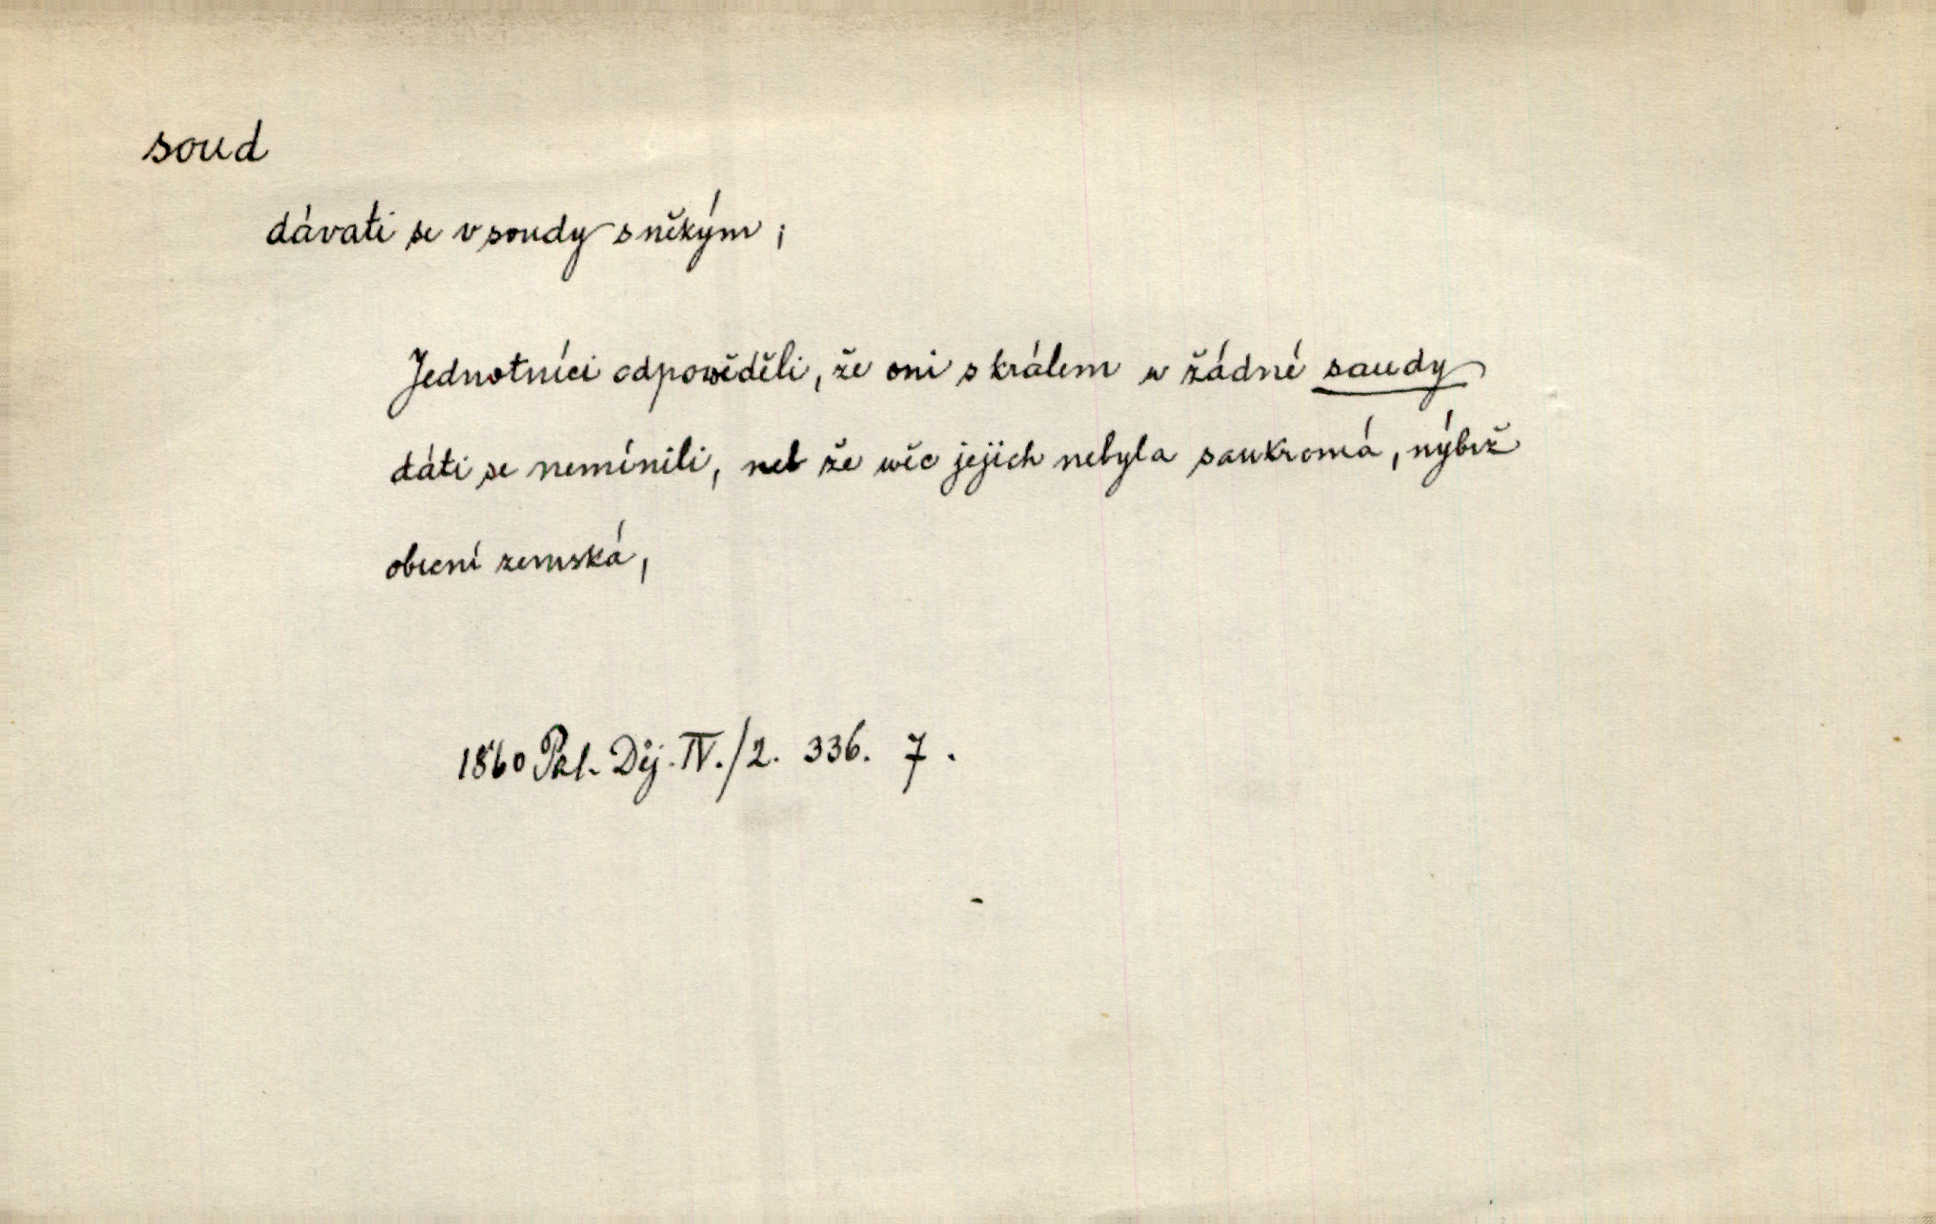 soud
dávati se v soudy s někým;
Jednotníci odpowěděli, že oni s králem w žádné saudy
dáti se nemínili, neb že wěc jejich nebyla saukromá, nýbrž
obecní zemská,
1860 Pal. Děj. IV./2. 336. 7.